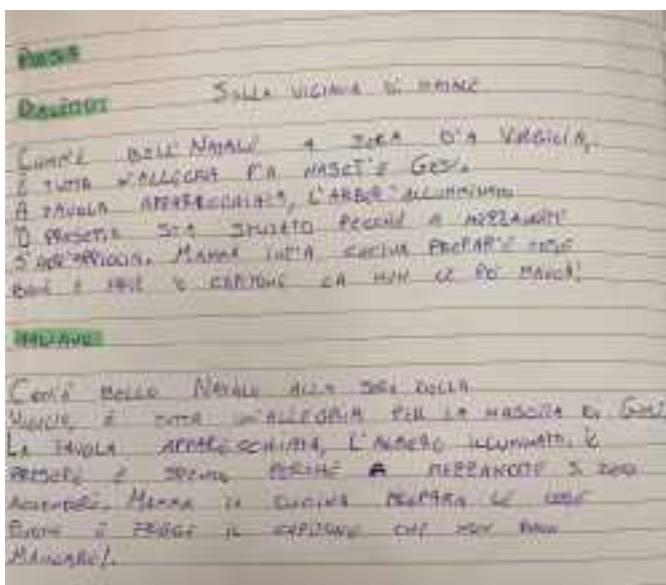 POESIA
DIALETTO
SULLA VIGILIA DI NATALE
BELL' NATALE A SERA D'A VIRGILIA,
È TUTTA N'ALLEGRIA P'A NASCIT'E GESÙ.
A TAVOLA APPARECCHIATA, L'ARBER' ALLUMINATO
'O PRESEPIO STA STUTATO PECCHÉ A MEZZANOTTE
S'ADDA APPICCIA. MAMMA INT'A CUCINA PREPAR'E COSE
BONE E 'O CAPITONE CA NUN CE PÒ MANCÀ!
ITALIANO
COM'È BELLO NATALE ALLA SERA DELLA
VIGILIA, È TUTTA UN'ALLEGRIA PER LA NASCITA DI GESÙ.
LA TAVOLA APPARECCHIATA, L'ALBERO ILLUMINATO, IL
PRESEPE È SPENTO PERCHÉ A MEZZANOTTE SI DEVE
ACCENDERE. MAMMA IN CUCINA PREPARA LE COSE
BUONE E FRIGGE IL CAPITONE CHE NON PUÒ
MANCARE!